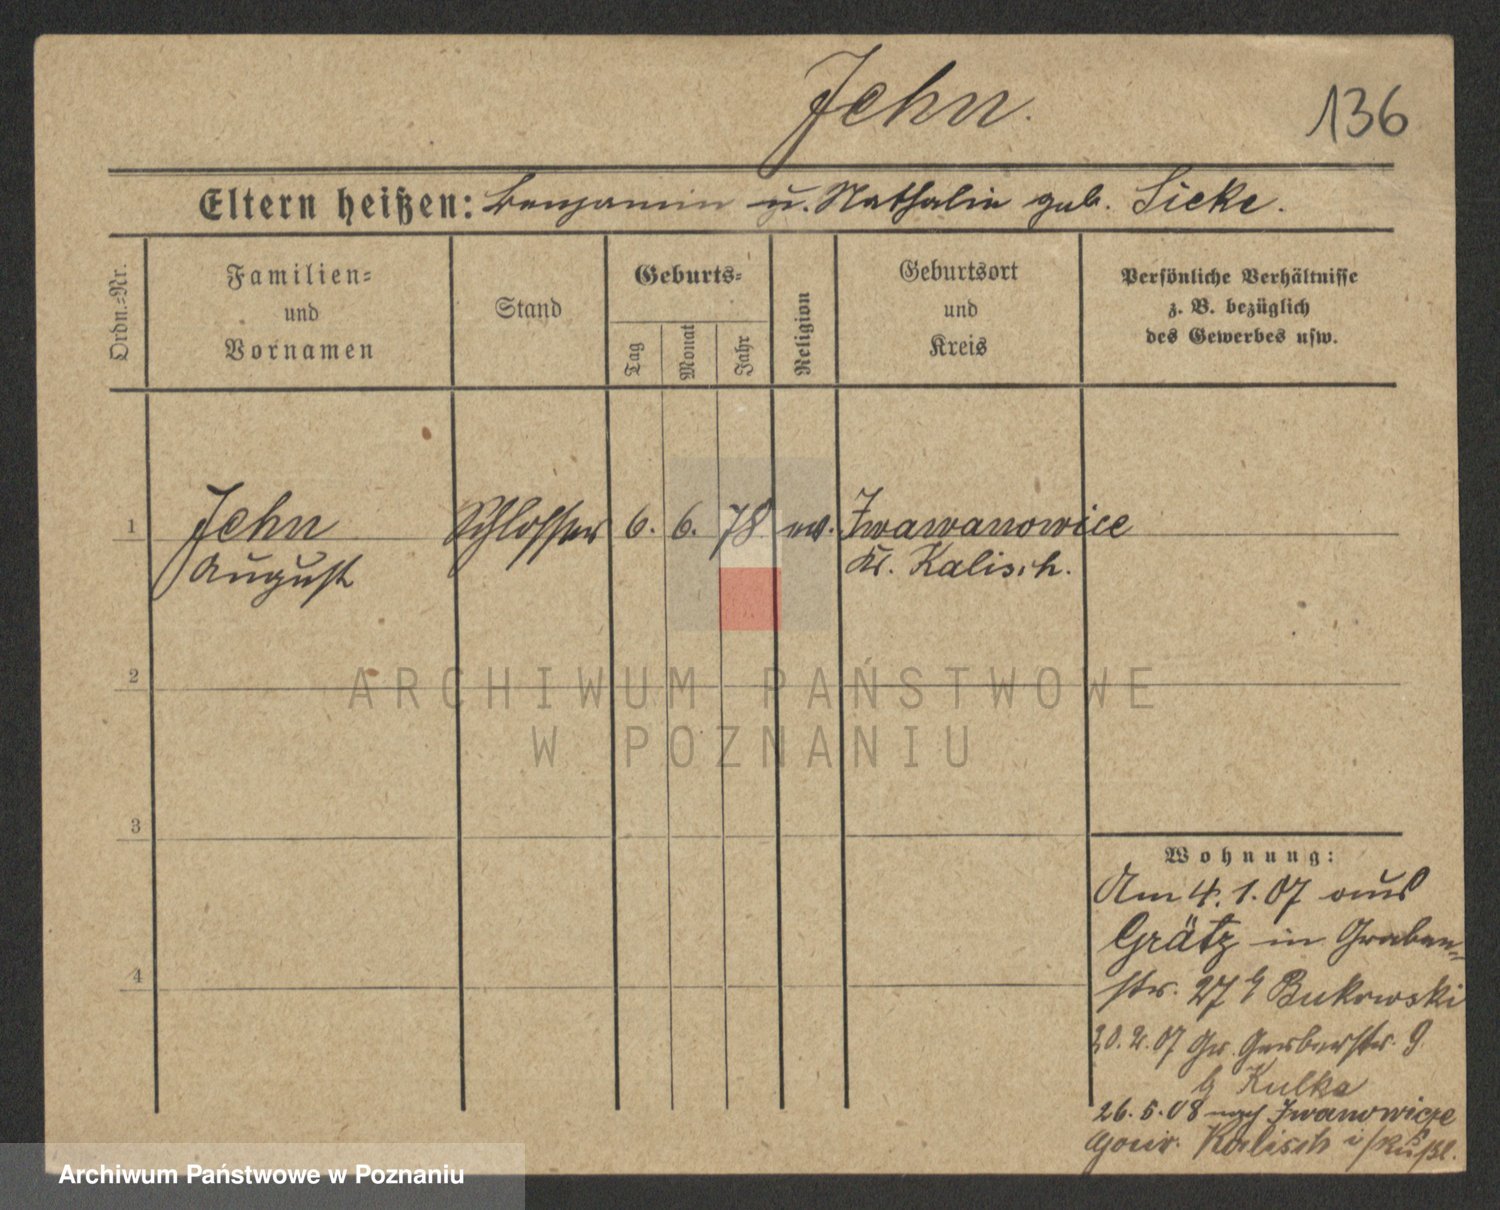 Jehn.
136
Eltern heißen: Benjamin u. Nathalie geb. Sieke.
Ordn.-Nr.
Familien-
und
Vornamen
Stand
Geburts-
Tag
Monat
Jahr
Religion
Geburtsort
und
Kreis
Persönliche Verhältnisse
z. B. bezüglich
des Gewerbes usw.
1
Jehn Schlosser 6. 6. 78 ev. Iwawanowice
August Kr. Kalisch.
2
ARCHIWUM PAŃSTWOWE
W POZNANIU
3
4
Wohnung:
Am 4.1.07 aus
Grätz in Graben-
str. 27 b Bukowski
20.2.07 Gr. Gerberstr. 9.
b Kulka
26.5.08 nach Iwanowicze
Gouv. Kalisch i/Rußl.
Archiwum Państwowe w Poznaniu